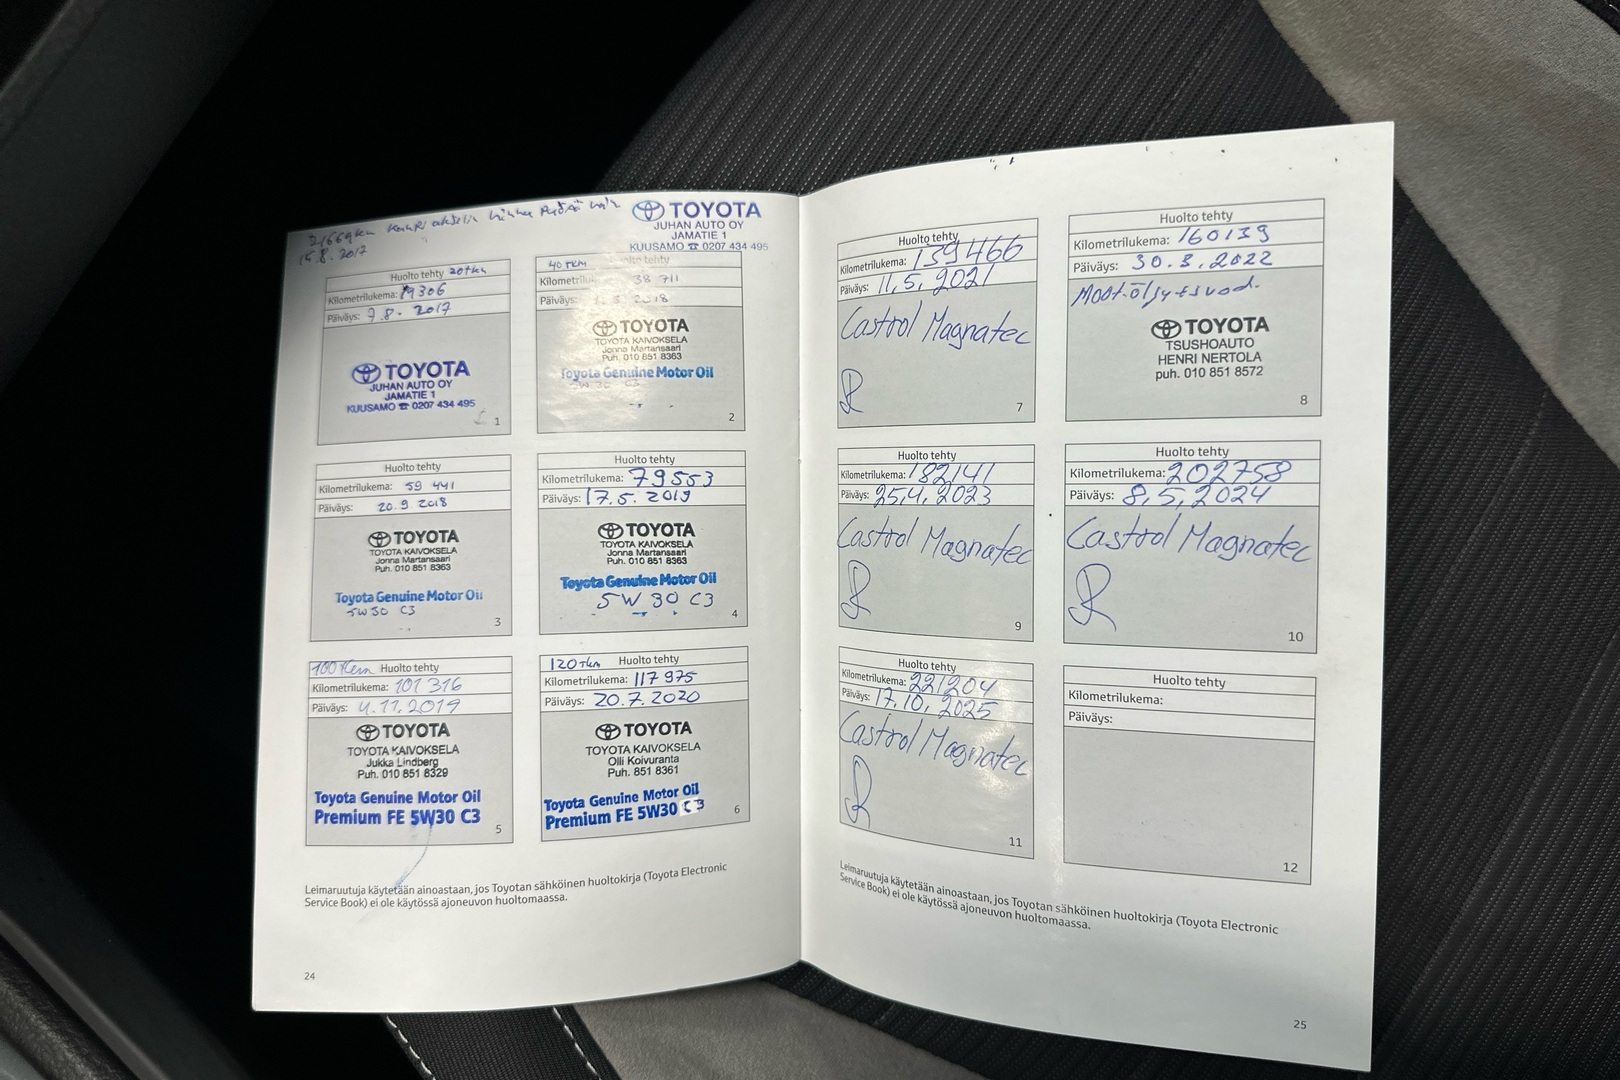 15.8.2017
TOYOTA
JUHAN AUTO OY
JAMATIE 1
KUUSAMO ☎ 0207 434 495
Huolto tehty 20tkm
Kilometrilukema: 19306
Päiväys: 7.8.2017
TOYOTA
JUHAN AUTO OY
JAMATIE 1
KUUSAMO ☎ 0207 434 495
1
40 TKM Huolto tehty
Kilometrilukema: 38 711
Päiväys: 2018
TOYOTA
TOYOTA KAIVOKSELA
Jonna Martansaari
Puh. 010 851 8363
Toyota Genuine Motor Oil
5W 30 C3
2
Huolto tehty
Kilometrilukema: 59 441
Päiväys: 20.9 2018
TOYOTA
TOYOTA KAIVOKSELA
Jonna Martansaari
Puh. 010 851 8363
Toyota Genuine Motor Oil
5W30 C3
3
Huolto tehty
Kilometrilukema: 79553
Päiväys: 17.5. 2019
TOYOTA
TOYOTA KAIVOKSELA
Jonna Martansaari
Puh. 010 851 8363
Toyota Genuine Motor Oil
5W 30 C3
4
100 Tkm Huolto tehty
Kilometrilukema: 101 316
Päiväys: 4.11.2019
TOYOTA
TOYOTA KAIVOKSELA
Jukka Lindberg
Puh. 010 851 8329
Toyota Genuine Motor Oil
Premium FE 5W30 C3
5
120 Tkm Huolto tehty
Kilometrilukema: 117 975
Päiväys: 20.7.2020
TOYOTA
TOYOTA KAIVOKSELA
Olli Koivuranta
Puh. 851 8361
Toyota Genuine Motor Oil
Premium FE 5W30 C3
6
Leimaruutuja käytetään ainoastaan, jos Toyotan sähköinen huoltokirja (Toyota Electronic
Service Book) ei ole käytössä ajoneuvon huoltomaassa.
24
Huolto tehty
Kilometrilukema: 139466
Päiväys: 11.5.2021
Castrol Magnatec
7
Huolto tehty
Kilometrilukema: 160139
Päiväys: 30.3.2022
Moot.öljytsvod.
TOYOTA
TSUSHOAUTO
HENRI NERTOLA
puh. 010 851 8572
8
Huolto tehty
Kilometrilukema: 182141
Päiväys: 25.4.2023
Castrol Magnatec
9
Huolto tehty
Kilometrilukema: 202758
Päiväys: 8.5.2024
Castrol Magnatec
10
Huolto tehty
Kilometrilukema: 221204
Päiväys: 17.10.2025
Castrol Magnatec
11
Huolto tehty
Kilometrilukema:
Päiväys:
12
Leimaruutuja käytetään ainoastaan, jos Toyotan sähköinen huoltokirja (Toyota Electronic
Service Book) ei ole käytössä ajoneuvon huoltomaassa.
25